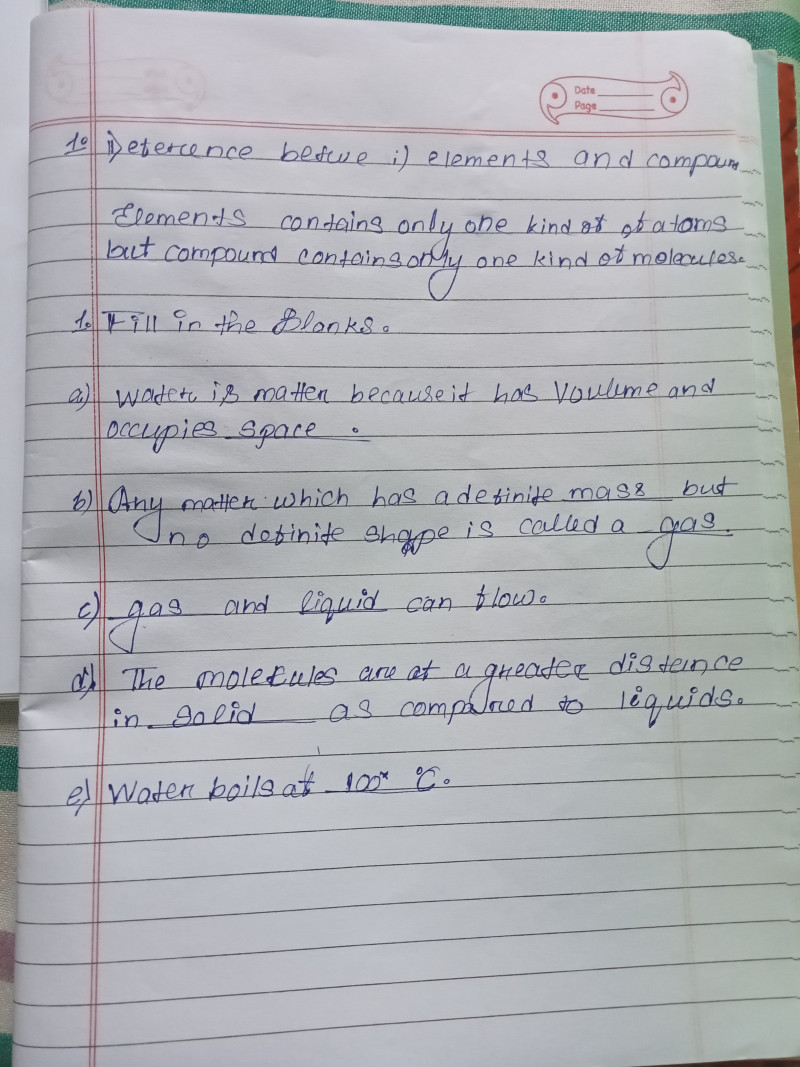 Date
Page
1. Deterence betwe i) elements and compoun
Elements contains only one kind of of atoms
but compound contains only one kind of molecules.
1. Fill in the Blanks.
a) Water is matter because it has Voulume and
occupies space .
b) Any matter which has a definite mass but
no definite shape is called a gas.
c) gas and liquid can flow.
d) The molekules are at a greater disteince
in solid as compared to liquids.
e) Water boils at 100° °C.